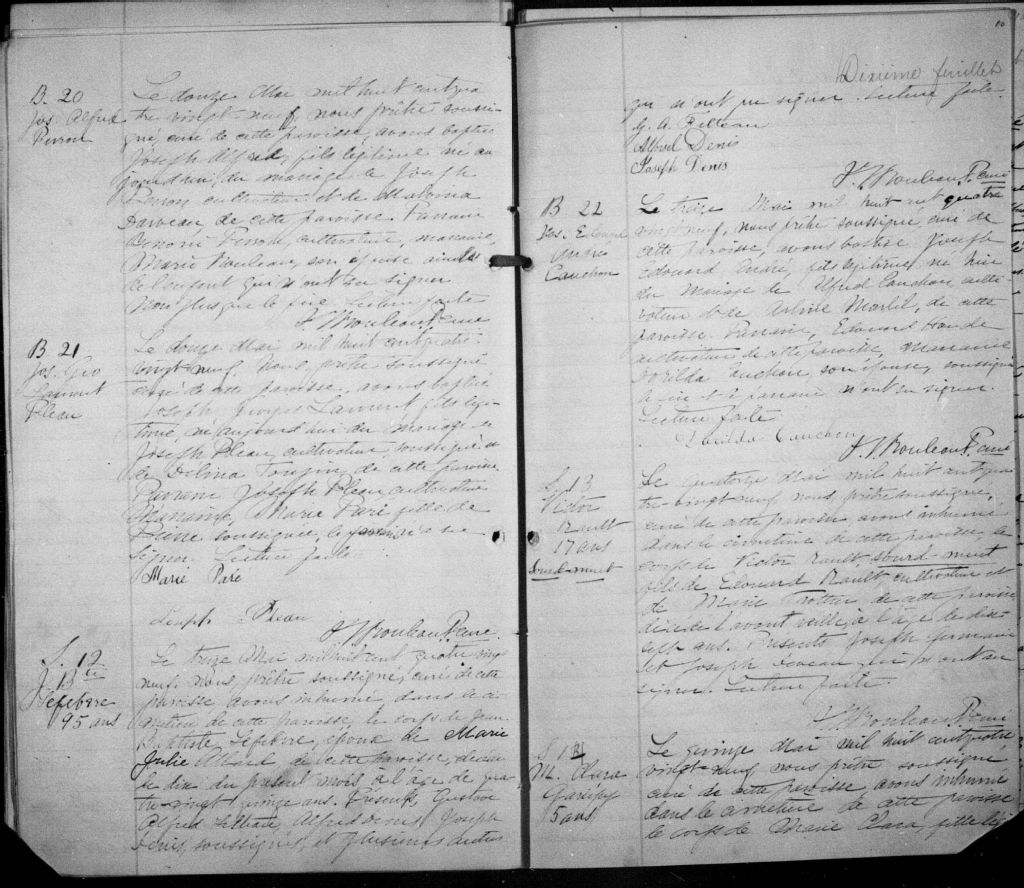 B. 20
Jos Alfred
Perron
Le douze Mai mil huit cent qua
tre vingt neuf, nous prêtre soussi-
gné, curé de cette paroisse, avons baptisé
Joseph Alfred, fils légitime né au
jourd'hui, du mariage de Joseph
Perron cultivateur et de Malvina
de cette paroisse. Parrain
cultivateur, marraine,
Marie Rouleau, son épouse
de l'enfant qui n'ont su signer
non plus que le père. Lecture faite
J. Rouleau Ptre curé
B. 21
Jos. Geo
Laurent
Pleau
Le douze Mai mil huit cent quatre
vingt neuf, nous, prêtre soussigné
curé de cette paroisse, avons baptisé
Joseph Georges Laurent, fils légi-
time, né aujourd'hui du mariage de
Joseph Pleau, cultivateur, soussigné et
de Delima Toupin, de cette paroisse
Parrain Joseph Pleau, cultivateur
Marraine, Marie Paré fille de
soussignée, le parrain n'a su
signer. Lecture faite
Marie Paré
Joseph Pleau
J. Rouleau Ptre curé.
S. 12
J. Bte
Lefebvre
95 ans
Le treize Mai mil huit cent quatre vingt
neuf, nous, prêtre soussigné, curé de cette
paroisse, avons inhumé dans le ci-
metière de cette paroisse, le corps de Jean
Baptiste Lefebvre, époux de Marie
Julie Allard de cette paroisse, décédé
le dix du présent mois à l'âge de qua-
tre-vingt quinze ans. Présents, Gustave
Alfred, Alfred Denis, Joseph
Denis, soussignés, et plusieurs autres
10
Dixième feuillet
qui n'ont pu signer. Lecture faite.
G. A.
Alfred Denis
Joseph Denis
J. Rouleau Ptre curé
B 22
Jos. Edouard
André
Cauchon
Le treize Mai mil huit cent quatre
vingt neuf, nous, prêtre soussigné curé de
cette paroisse, avons baptisé Joseph
Edouard André, fils légitime, né hier
du mariage de Alfred Cauchon, culti-
vateur & de Martel, de cette
paroisse. Parrain, Edouard
cultivateur de cette paroisse, Marraine
Cauchon son épouse, soussignée
le père et le parrain n'ont su signer.
Lecture faite
Cauchon
J. Rouleau Ptre curé
S. 13
Victor
Rault
17 ans
Sourd-muet
Le quatorze Mai mil huit cent qua-
tre-vingt neuf, nous, prêtre soussigné,
curé de cette paroisse, avons inhumé
dans le cimetière de cette paroisse, le
corps de Victor Rault, sourd-muet
fils de Edouard Rault, cultivateur et
de Marie Trottier de cette paroisse
décédé l'avant veille, à l'âge de dix-
sept ans. Présents Joseph Germain
et Joseph qui n'ont su
signer. Lecture faite.
J. Rouleau Ptre curé
S. 14
M. Clara
Gariépy
5 ans
Le quinze Mai mil huit cent quatre
vingt-neuf nous prêtre soussigné
curé de cette paroisse, avons inhumé
dans le cimetière de cette paroisse
le corps de Marie Clara, fille